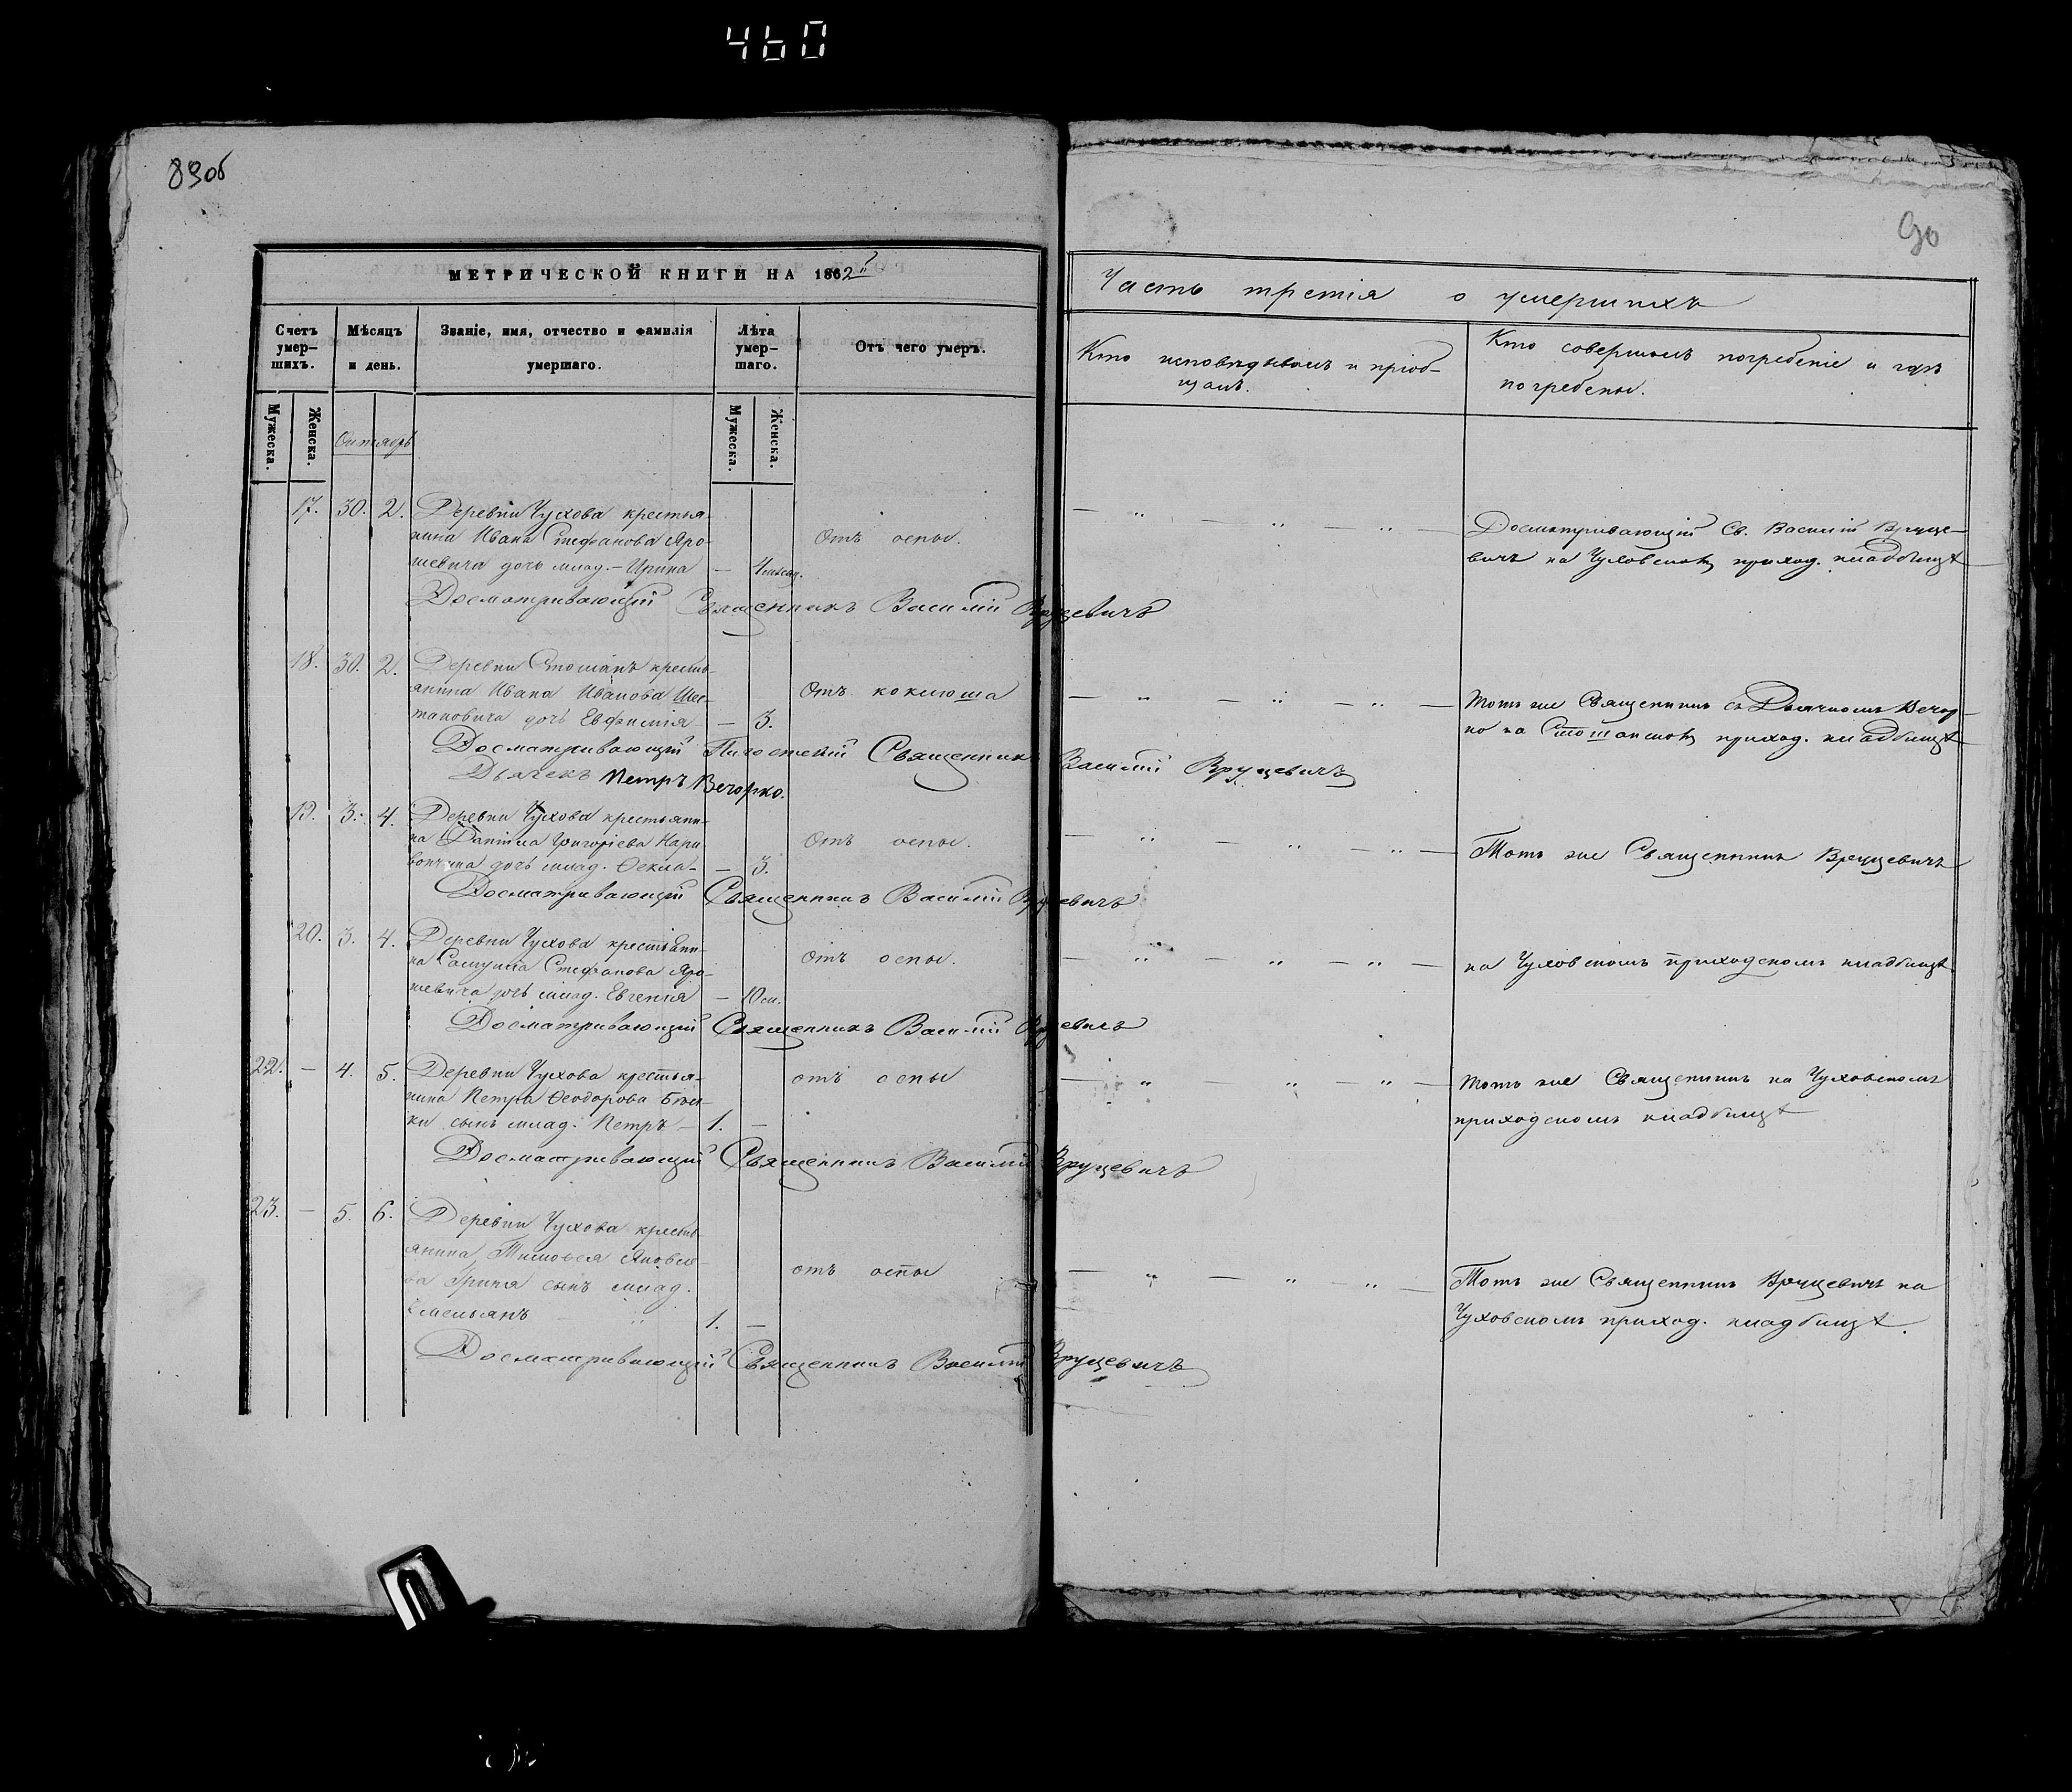 460
89об
90
МЕТРИЧЕСКОЙ КНИГИ НА 1862й
Часть третія о умершихъ
Счетъ умер-шихъ.
Мѣсяцъ и день.
Званіе, имя, отчество и фамилія умершаго.
Лѣта умер-шаго.
Отъ чего умеръ.
Кто исповѣдывалъ и пріоб-
щалъ.
Кто совершалъ погребеніе и гдѣ
погребены.
Мужеска.
Женска.
Октябрь
Мужеска.
Женска.
17. 30. 2. Деревни Чухова крестья-
нина Ивана Стефанова Яро-
шевича дочь млад. – Ирина — 4 мѣсяц.
Отъ оспы.
Досматривающій Св. Василій Вруце-
вичъ на Чуховскомъ приход. кладбищѣ
Досматривающій Священникъ Василій Вруцевичъ
18. 30. 2. Деревни Стошанъ кресть-
янина Ивана Иванова Шес-
таковича дочь Евфимія — 3.
Отъ коклюша
Тотъ же Священникъ съ Дьячкомъ Вечор-
ко на Стошанскомъ приход. кладбищѣ
Досматривающій Священникъ Василій Вруцевичъ
Дьячекъ Петръ Вечорко.
19. 3. 4. Деревни Чухова крестьяни-
на Даніила Григоріева
дочь млад. Ѳекла — 3.
Отъ оспы.
Тотъ же Священникъ Вруцевичъ
Досматривающій Священникъ Василій Вруцевичъ
20. 3. 4. Деревни Чухова крестьяни-
на Самуила Стефанова Яро-
шевича дочь млад. Евгенія — 10 м.
Отъ оспы.
на Чуховскомъ приходскомъ кладбищѣ
Досматривающій Священникъ Василій Вруцевичъ
22. — 4. 5. Деревни Чухова крестья-
нина Петра Ѳеодорова
сынъ млад. Петръ — 1. —
отъ оспы
Тотъ же Священникъ на Чуховскомъ
приходскомъ кладбищѣ
Досматривающій Священникъ Василій Вруцевичъ
23. — 5. 6. Деревни Чухова кресть-
янина Тимоѳея Яковле-
ва Гриня сынъ млад.
Емельянъ 1. —
отъ оспы
Тотъ же Священникъ Вруцевичъ на
Чуховскомъ приход. кладбищѣ.
Досматривающій Священникъ Василій Вруцевичъ